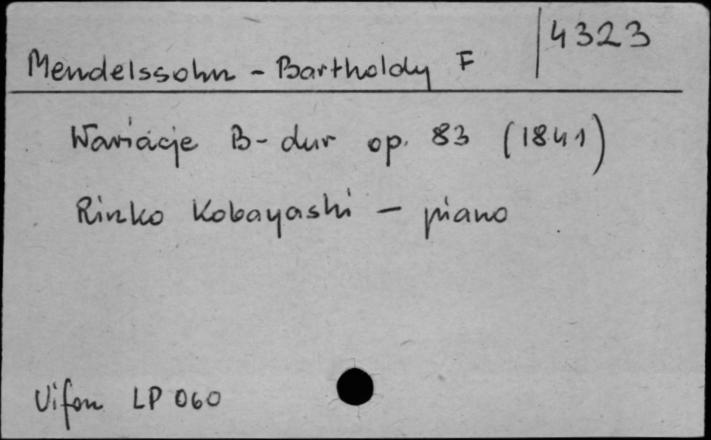 4323
Mendelssohn - Bartholdy F
Wariacje B-dur op. 83 (1841)
Rinko Kobayashi - piano
Vifon LP 060